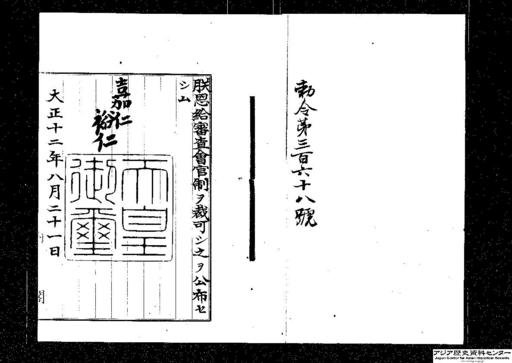 勅令第三百六十八號
朕恩給審査會官制ヲ裁可シ之ヲ公布セ
シム
嘉仁
裕仁
天皇
御璽
大正十二年八月二十一日
アジア歴史資料センター
Japan Center for Asian Historical Records